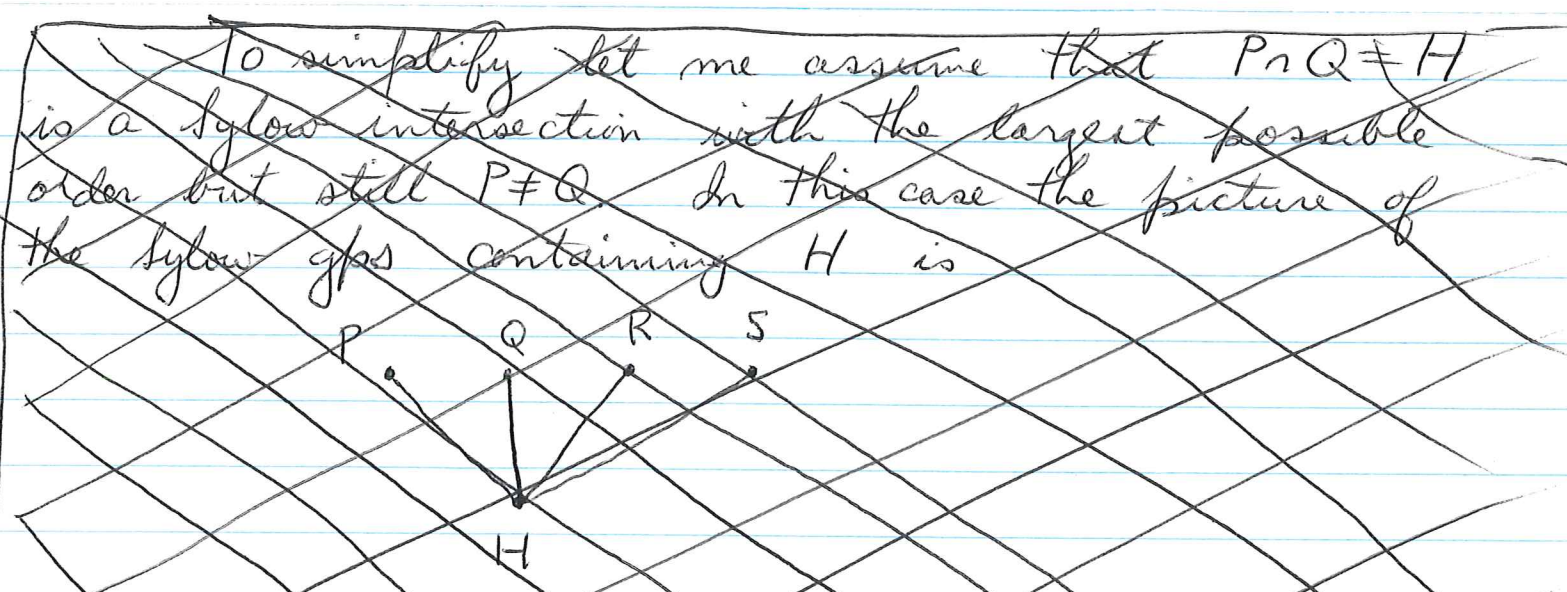 To simplify let me assume that P∩Q = H
is a Sylow intersection with the largest possible
order but still P ≠ Q. In this case the picture of
the Sylow gps containing H is
P Q R S
H